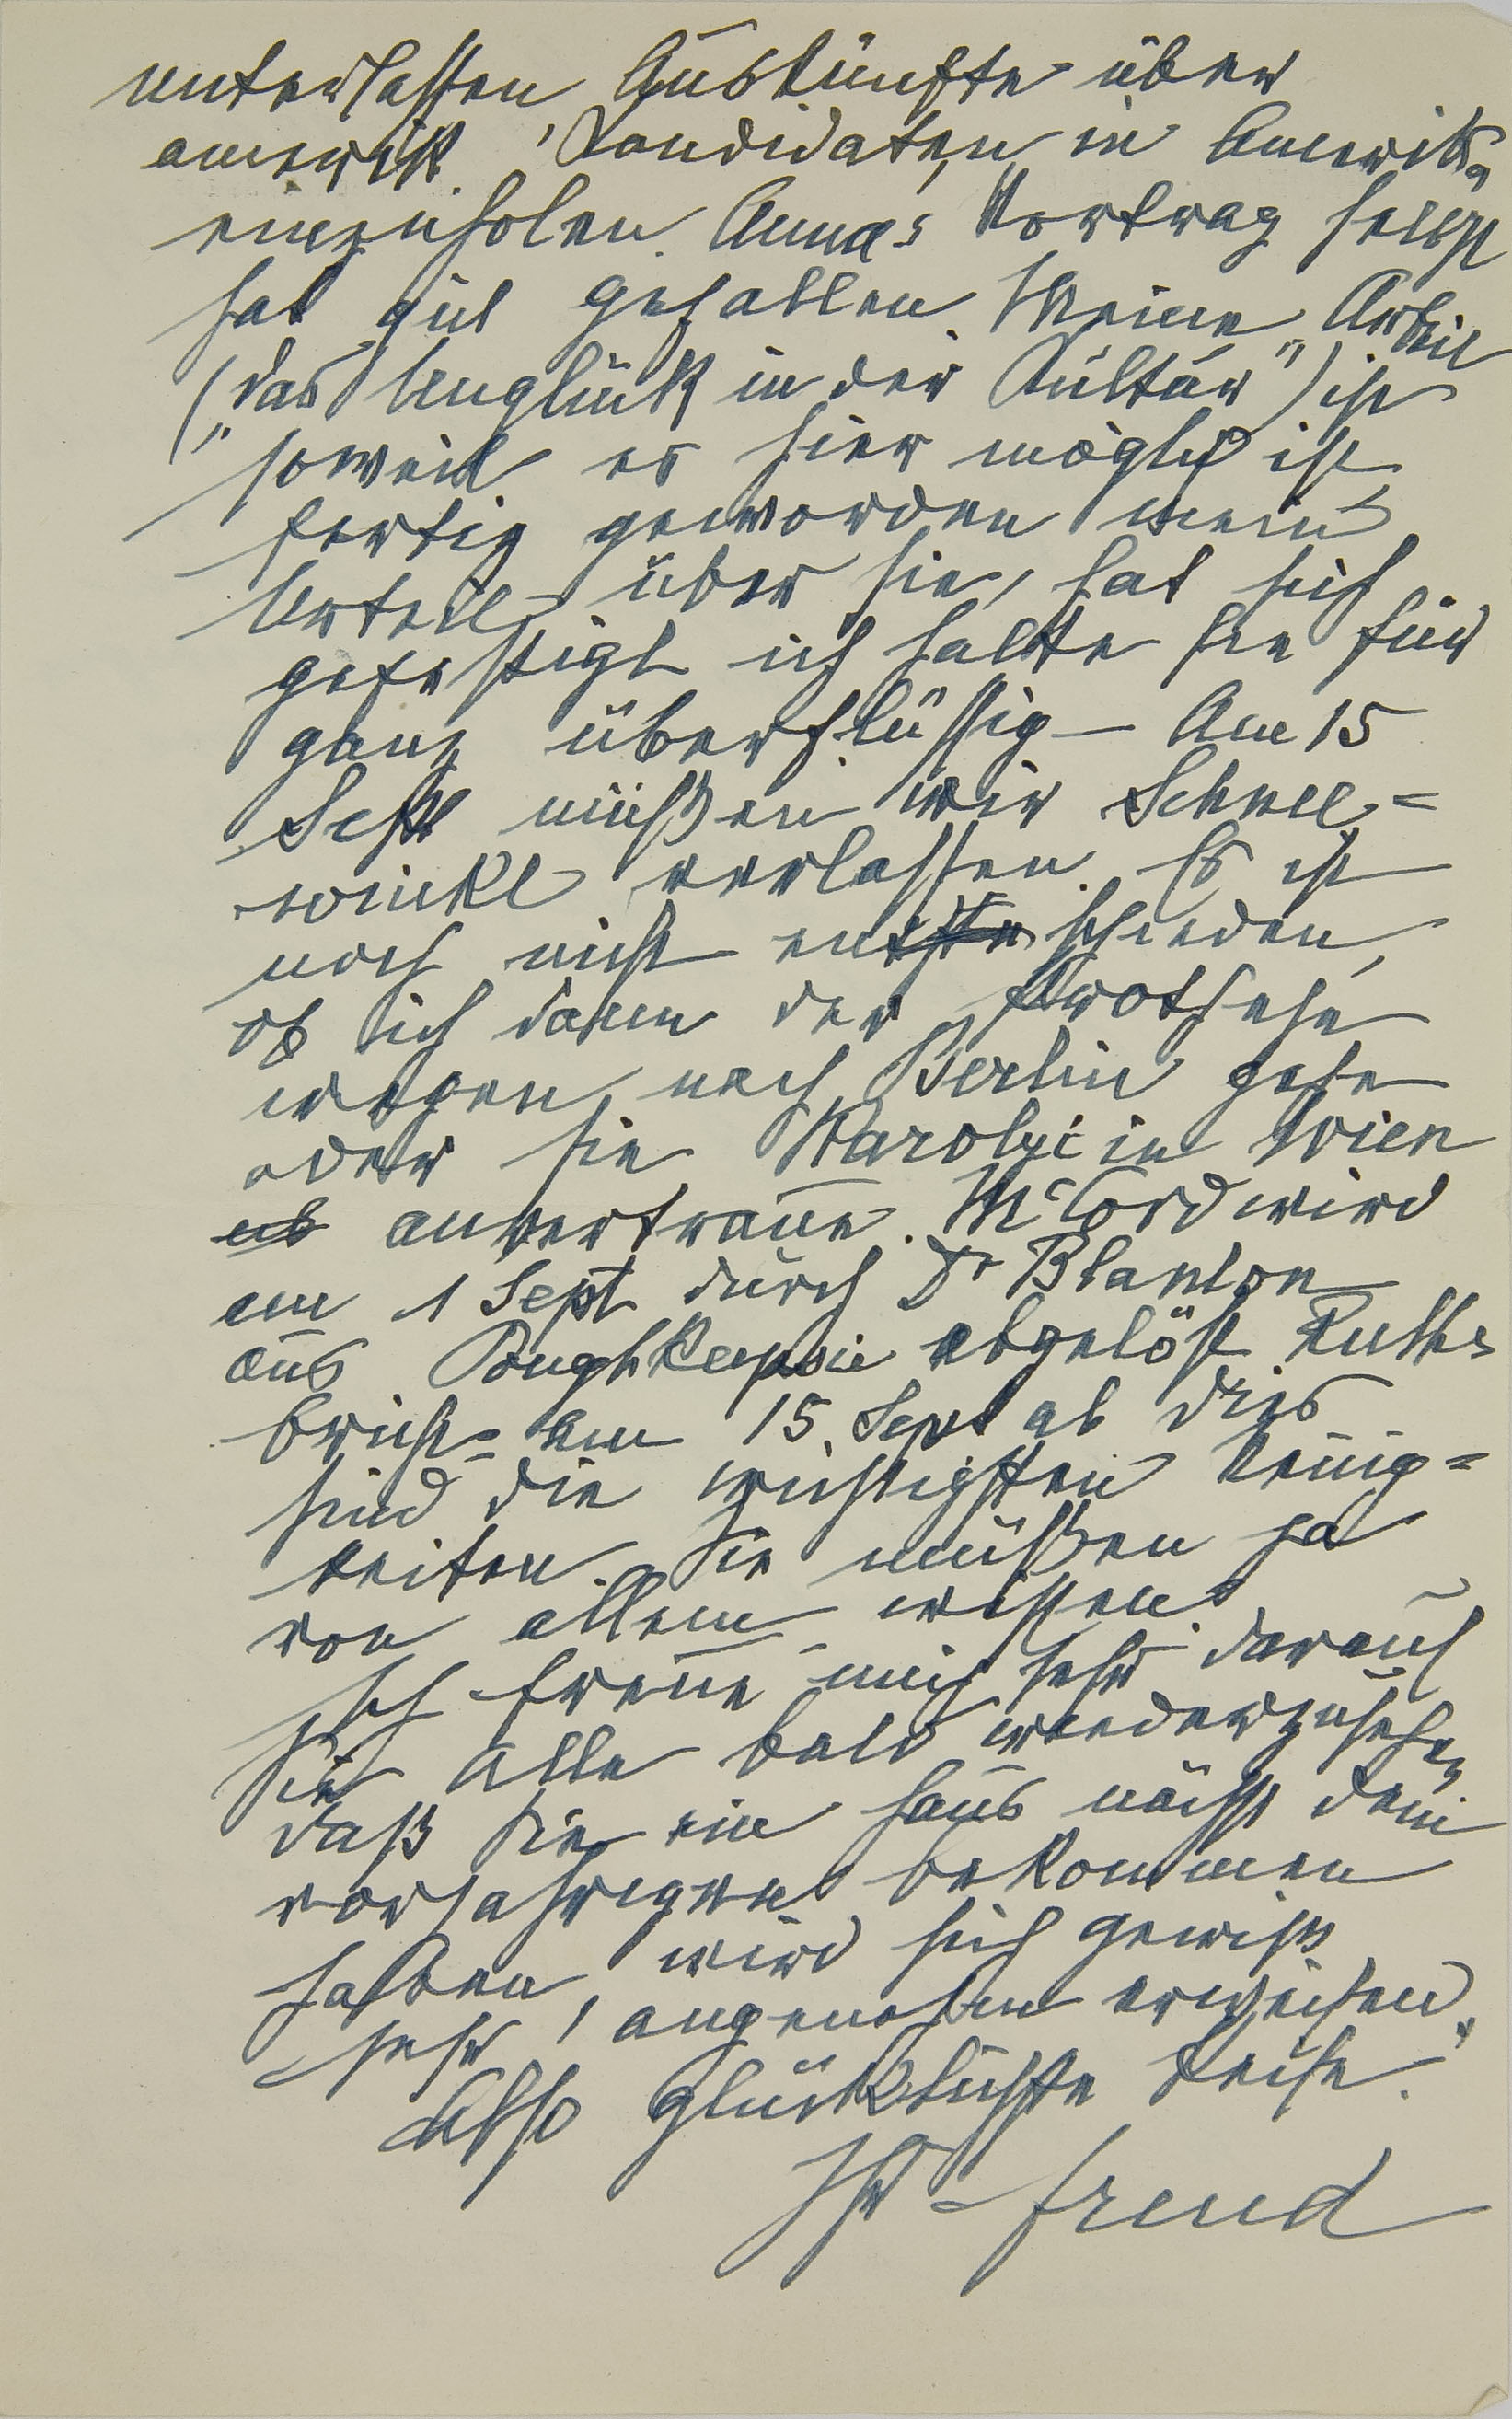 unterlassen Auskünfte über
amerik. Kandidaten in Amerika
einzuholen. Annas Vortrag selbst
hat gut gefallen. Meine Arbeit
(„das Unglück in der Kultur") ist
soweit es hier möglich ist
fertig geworden mein
Urteil über sie, hat sich
gefestigt ich halte sie für
ganz überflüssig — Am 15
Sept müßen wir Schnee=
winkl verlassen. Es ist
noch nicht entschieden,
ob ich dann der Prothese
wegen nach Berlin gehe
oder sie Karolyi in Wien
anvertraue. McCord wird
am 1 Sept durch Dr Blanton
aus Poughkeepsie abgelöst Ruth
bricht am 15. Sept ab dies
sind die wichtigsten Neuig=
keiten. Sie müßen ja
von allem wissen.
Ich freue mich sehr darauf
Sie Alle bald wiederzusehen
daß Sie ein Haus nächst dem
vorjährigen bekommen
haben, wird sich gewiß
sehr angenehm erweisen.
Also glücklichste Reise.
Ihr Freud